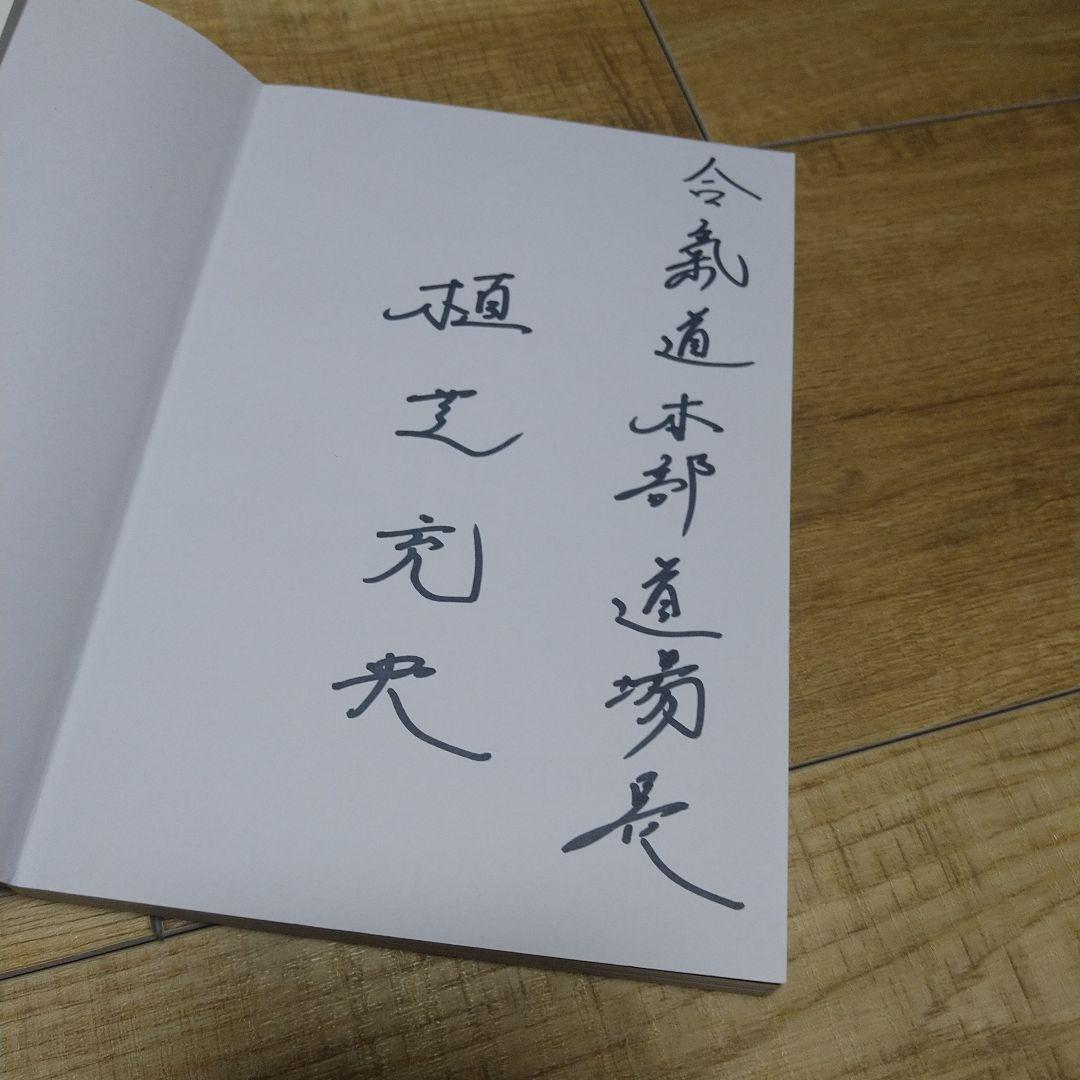 合氣道本部道場長
植芝充央